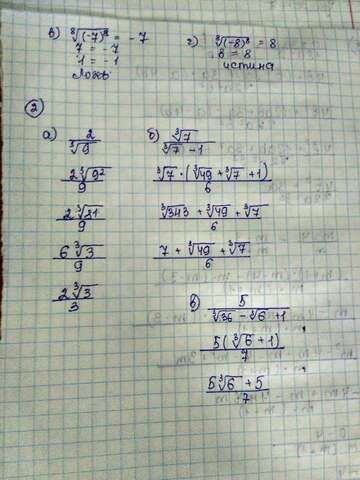 в) ⁸√(-7)⁸ = -7
7 = -7
1 = -1
Ложь
г) ⁸√(-8)⁸ = 8
8 = 8
истина
②
а) 2 / ³√9
2 ³√9² / 9
2 ³√81 / 9
6 ³√3 / 9
2 ³√3 / 3
б) ³√7 / (³√7 - 1)
³√7 · (³√49 + ³√7 + 1) / 6
(³√343 + ³√49 + ³√7) / 6
(7 + ³√49 + ³√7) / 6
в) 5 / (³√36 - ³√6 + 1)
5(³√6 + 1) / 7
(5 ³√6 + 5) / 7